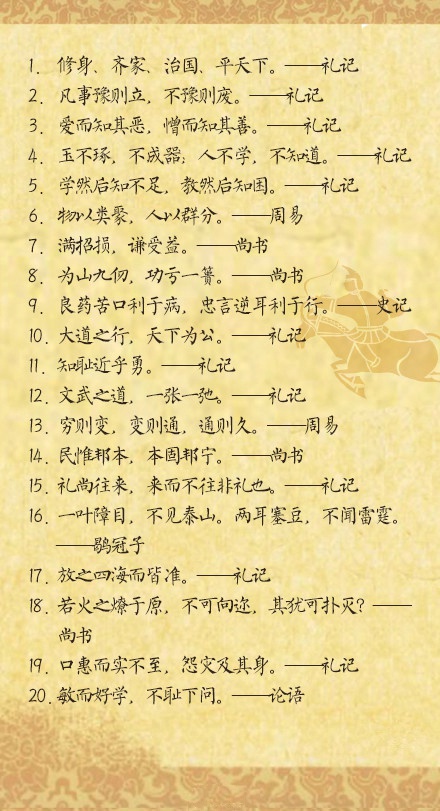 1. 修身、齐家、治国、平天下。——礼记
2. 凡事豫则立，不豫则废。——礼记
3. 爱而知其恶，憎而知其善。——礼记
4. 玉不琢，不成器；人不学，不知道。——礼记
5. 学然后知不足，教然后知困。——礼记
6. 物以类聚，人以群分。——周易
7. 满招损，谦受益。——尚书
8. 为山九仞，功亏一篑。——尚书
9. 良药苦口利于病，忠言逆耳利于行。——史记
10. 大道之行，天下为公。——礼记
11. 知耻近乎勇。——礼记
12. 文武之道，一张一弛。——礼记
13. 穷则变，变则通，通则久。——周易
14. 民惟邦本，本固邦宁。——尚书
15. 礼尚往来，来而不往非礼也。——礼记
16. 一叶障目，不见泰山。两耳塞豆，不闻雷霆。
——鹖冠子
17. 放之四海而皆准。——礼记
18. 若火之燎于原，不可向迩，其犹可扑灭？——
尚书
19. 口惠而实不至，怨灾及其身。——礼记
20. 敏而好学，不耻下问。——论语